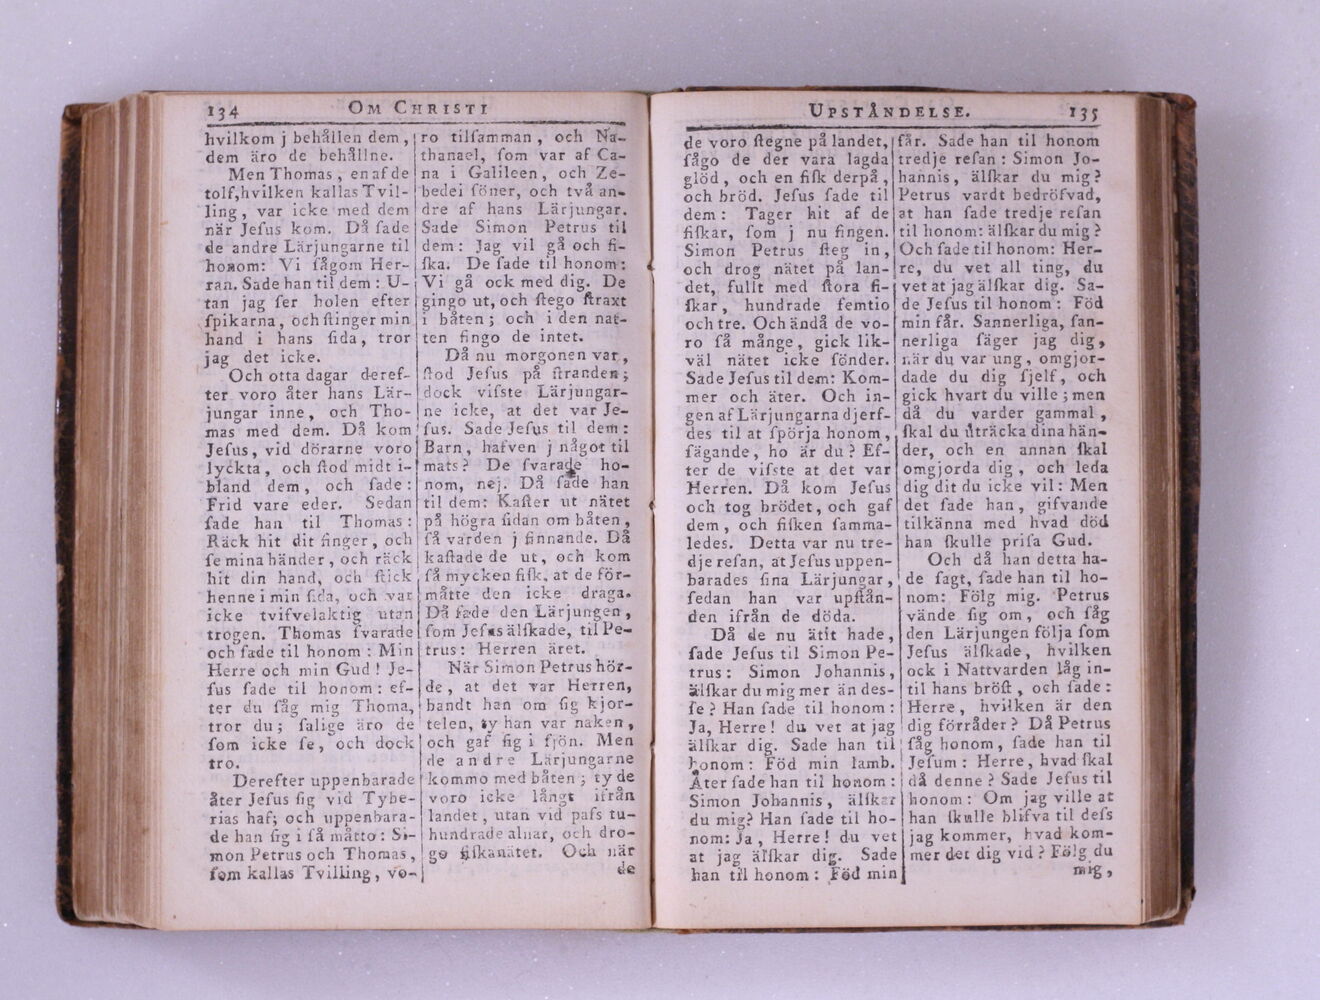 134
OM CHRISTI
hvilkom j behållen dem,
dem äro de behållne.
Men Thomas, en af de
tolf, hvilken kallas Tvil-
ling, var icke med dem
när Jeſus kom. Då ſade
de andre Lärjungarne til
honom: Vi ſågom Her-
ran. Sade han til dem: U-
tan jag ſer holen efter
ſpikarna, och ſtinger min
hand i hans ſida, tror
jag det icke.
Och otta dagar deref-
ter voro åter hans Lär-
jungar inne, och Tho-
mas med dem. Då kom
Jeſus, vid dörarne voro
lyckta, och ſtod midt i-
bland dem, och ſade:
Frid vare eder. Sedan
ſade han til Thomas:
Räck hit dit finger, och
ſe mina händer, och räck
hit din hand, och ſtick
henne i min ſida, och var
icke tvifvelaktig utan
trogen. Thomas ſvarade
och ſade til honom: Min
Herre och min Gud! Je-
ſus ſade til honom: ef-
ter du ſåg mig Thoma,
tror du; ſalige äro de
ſom icke ſe, och dock
tro.
Derefter uppenbarade
åter Jeſus ſig vid Tybe-
rias haf; och uppenbara-
de han ſig i ſå måtto: Si-
mon Petrus och Thomas,
ſom kallas Tvilling, vo-
ro tilſamman, och Na-
thanael, ſom var af Ca-
na i Galileen, och Ze-
bedei ſöner, och två an-
dre af hans Lärjungar.
Sade Simon Petrus til
dem: Jag vil gå och fi-
ſka. De ſade til honom:
Vi gå ock med dig. De
gingo ut, och ſtego ſtraxt
i båten; och i den nat-
ten fingo de intet.
Då nu morgonen var,
ſtod Jeſus på ſtranden;
dock viſste Lärjungar-
ne icke, at det var Je-
ſus. Sade Jeſus til dem:
Barn, hafven j något til
mats? De ſvarade ho-
nom, nej. Då ſade han
til dem: Kaſter ut nätet
på högra ſidan om båten,
ſå varden j finnande. Då
kaſtade de ut, och kom
ſå mycken fiſk, at de för-
måtte den icke draga.
Då ſade den Lärjungen,
ſom Jeſus älſkade, til Pe-
trus: Herren äret.
När Simon Petrus hör-
de, at det var Herren,
bandt han om ſig kjor-
telen, ty han var naken,
och gaf ſig i ſjön. Men
de andre Lärjungarne
kommo med båten; ty de
voro icke långt ifrån
landet, utan vid paſs tu-
hundrade alnar, och dro-
go fiſkanätet. Och när
de
UPSTÅNDELSE.
135
de voro ſtegne på landet,
ſågo de der vara lagda
glöd, och en fiſk derpå,
och bröd. Jeſus ſade til
dem: Tager hit af de
fiſkar, ſom j nu fingen.
Simon Petrus ſteg in,
och drog nätet på lan-
det, fullt med ſtora fi-
ſkar, hundrade femtio
och tre. Och ändå de vo-
ro ſå månge, gick lik-
väl nätet icke ſönder.
Sade Jeſus til dem: Kom-
mer och äter. Och in-
gen af Lärjungarna djerf-
des til at ſpörja honom,
ſägande, ho är du? Ef-
ter de viſste at det var
Herren. Då kom Jeſus
och tog brödet, och gaf
dem, och fiſken ſamma-
ledes. Detta var nu tre-
dje reſan, at Jeſus uppen-
barades ſina Lärjungar,
ſedan han var upſtån-
den ifrån de döda.
Då de nu ätit hade,
ſade Jeſus til Simon Pe-
trus: Simon Johannis,
älſkar du mig mer än des-
ſe? Han ſade til honom:
Ja, Herre! du vet at jag
älſkar dig. Sade han til
honom: Föd min lamb.
Åter ſade han til honom:
Simon Johannis, älſkar
du mig? Han ſade til ho-
nom: Ja, Herre! du vet
at jag älſkar dig. Sade
han til honom: Föd min
får. Sade han til honom
tredje reſan: Simon Jo-
hannis, älſkar du mig?
Petrus vardt bedröfvad,
at han ſade tredje reſan
til honom: älſkar du mig?
Och ſade til honom: Her-
re, du vet all ting, du
vet at jag älſkar dig. Sa-
de Jeſus til honom: Föd
min får. Sannerliga, ſan-
nerliga ſäger jag dig,
när du var ung, omgjor-
dade du dig ſjelf, och
gick hvart du ville; men
då du varder gammal,
ſkal du uträcka dina hän-
der, och en annan ſkal
omgjorda dig, och leda
dig dit du icke vil: Men
det ſade han, gifvande
tilkänna med hvad död
han ſkulle priſa Gud.
Och då han detta ha-
de ſagt, ſade han til ho-
nom: Fölg mig. Petrus
vände ſig om, och ſåg
den Lärjungen följa ſom
Jeſus älſkade, hvilken
ock i Nattvarden låg in-
til hans bröſt, och ſade:
Herre, hvilken är den
dig förråder? Då Petrus
ſåg honom, ſade han til
Jeſum: Herre, hvad ſkal
då denne? Sade Jeſus til
honom: Om jag ville at
han ſkulle blifva til deſs
jag kommer, hvad kom-
mer det dig vid? Fölg du
mig,